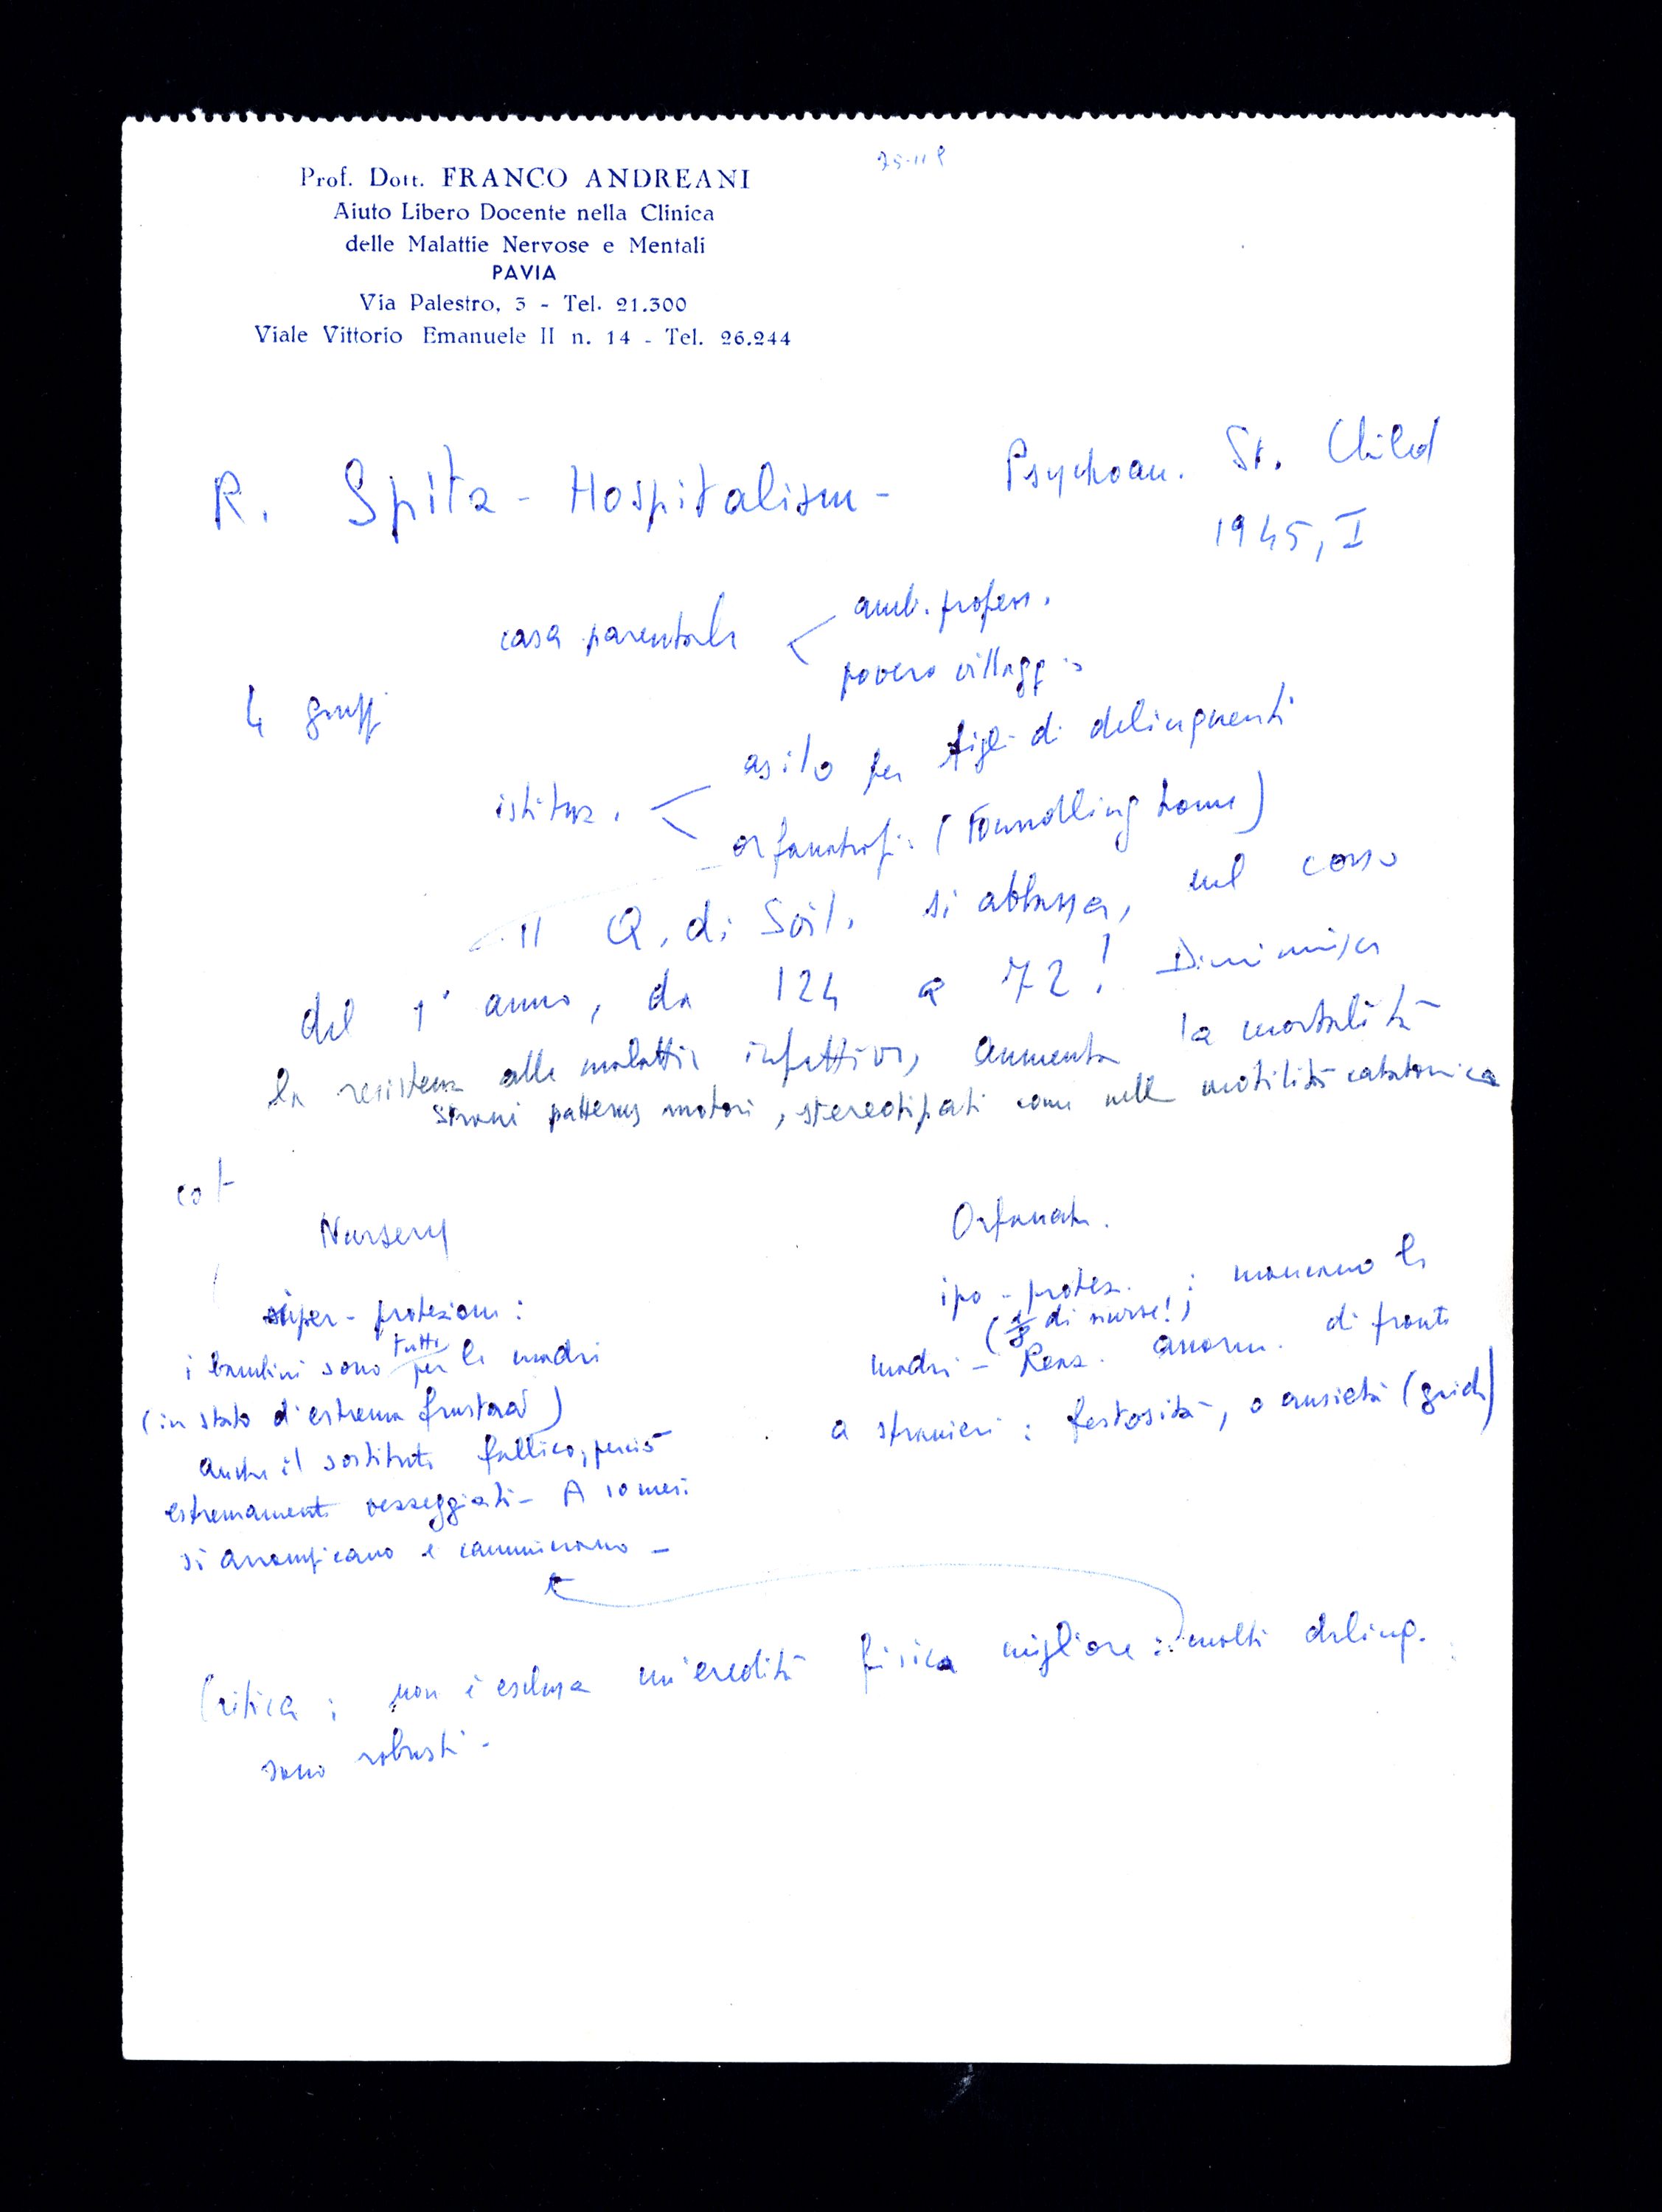 Prof. Dott. FRANCO ANDREANI
Aiuto Libero Docente nella Clinica
delle Malattie Nervose e Mentali
PAVIA
Via Palestro, 3 - Tel. 21.300
Viale Vittorio Emanuele II n. 14 - Tel. 26.244
R. Spitz - Hospitalism - Psychoan. St. Child
1945, I
casa parentale < amb. profess.
povero villaggio
4 gruppi
istituz. < asilo per figli di delinquenti
orfanotrofi (Foundling home)
Il Q. di Svil. si abbassa, nel corso
del 1° anno, da 124 a 72! Diminuisce
la resistenza alle malattie infettive, aumenta la mortalità
strani patterns motori, stereotipati come nella motilità catatonica
Nursery
super-protezione:
i bambini sono tutti per le madri
(in stato d'estrema frustraz)
anche il sostituto fallico, perciò
estremamente vezzeggiati - A 10 mesi
si arrampicano e camminano -
Orfanatr.
ipo-protez. : mancano le
(1/8 di nurse!)
madri - Reaz. anorm. di fronte
a stranieri : festosità, o ansietà (grida)
Critica : non è esclusa un'eredità fisica migliore : molti delinq.
sono robusti -